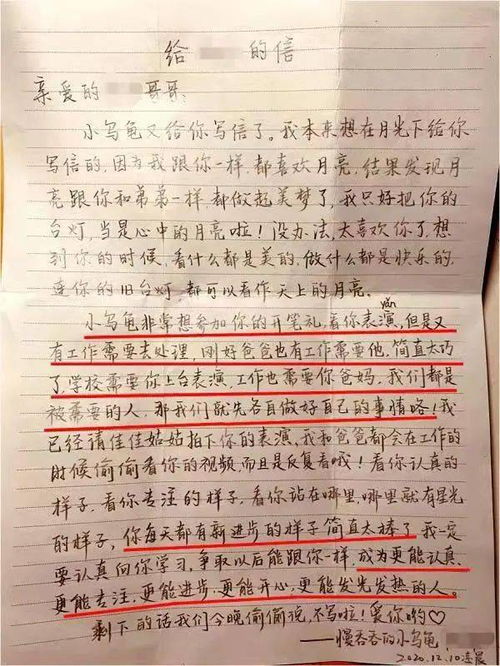 给 的信
亲爱的 哥哥
小乌龟又给你写信了。我本来想在月光下给你
写信的,因为我跟你一样,都喜欢月亮,结果发现月
亮跟你和弟弟一样,都做起美梦了,我只好把你的
台灯,当是心中的月亮啦!没办法,太喜欢你了,想
到你的时候,看什么都是美的,做什么都是快乐的,
连你的旧台灯,都可以看作天上的月亮。
yǎn
小乌龟非常想参加你的开笔礼,看你表演,但是又
有工作需要去处理,刚好爸爸也有工作需要他,简直太巧
了,学校需要你上台表演,工作也需要你爸妈,我们都是
被需要的人,那我们就先各自做好自己的事情咯!我
已经请佳佳姑姑拍下你的表演,我和爸爸都会在工作的
时候偷偷看你的视频,而且是反复看哦!看你认真的
样子,看你专注的样子,看你站在哪里,哪里就有星光
的样子,你每天都有新进步的样子简直太棒了,我一定
要认真向你学习,争取以后能跟你一样,成为更能认真,
更能专注,更能进步,更能开心,更能发光发热的人。
剩下的话我们今晚偷偷说,不写啦!爱你哟♡
——慢吞吞的小乌龟
2020.12.10凌晨